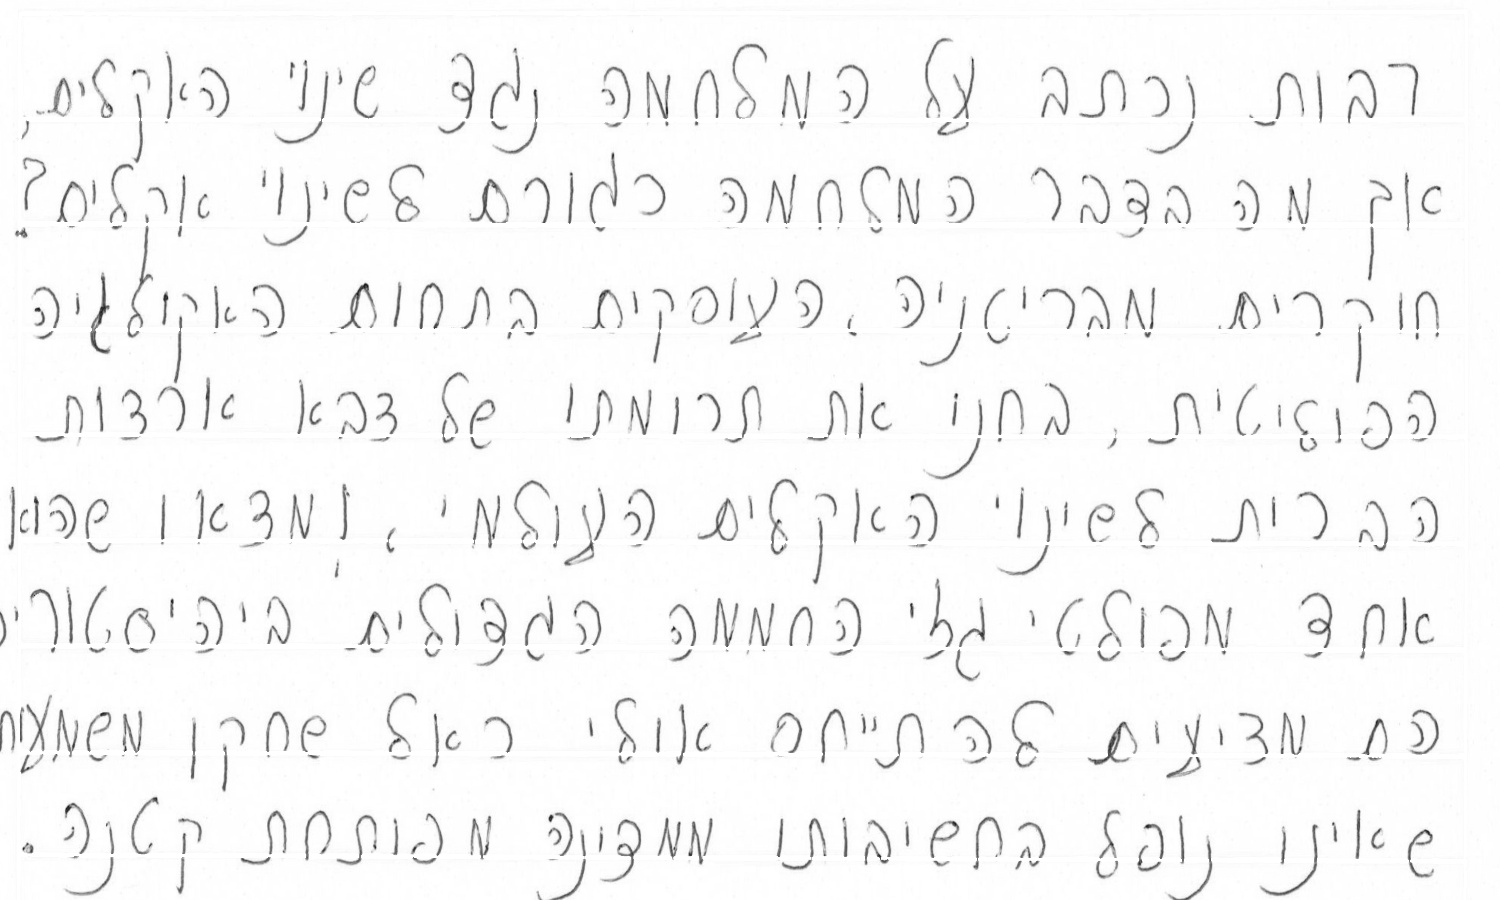 רבות נכתב על המלחמה נגד שינוי האקלים,
אך מה בדבר המלחמה כגורם לשינוי אקלים?
חוקרים מבריטניה, העוסקים בתחום האקולגיה
הפוליטית, בחנו את תרומתו של צבא ארצות
הברית לשינוי האקלים העולמי, ומצאו שהוא
אחד מפולטי גזי החממה הגדולים ביהיסטורים
הם מציעים להתייחס אולי כאל שחקן משמעות
שאינו נופל בחשיבותו ממדינה מפותחת קטנה.